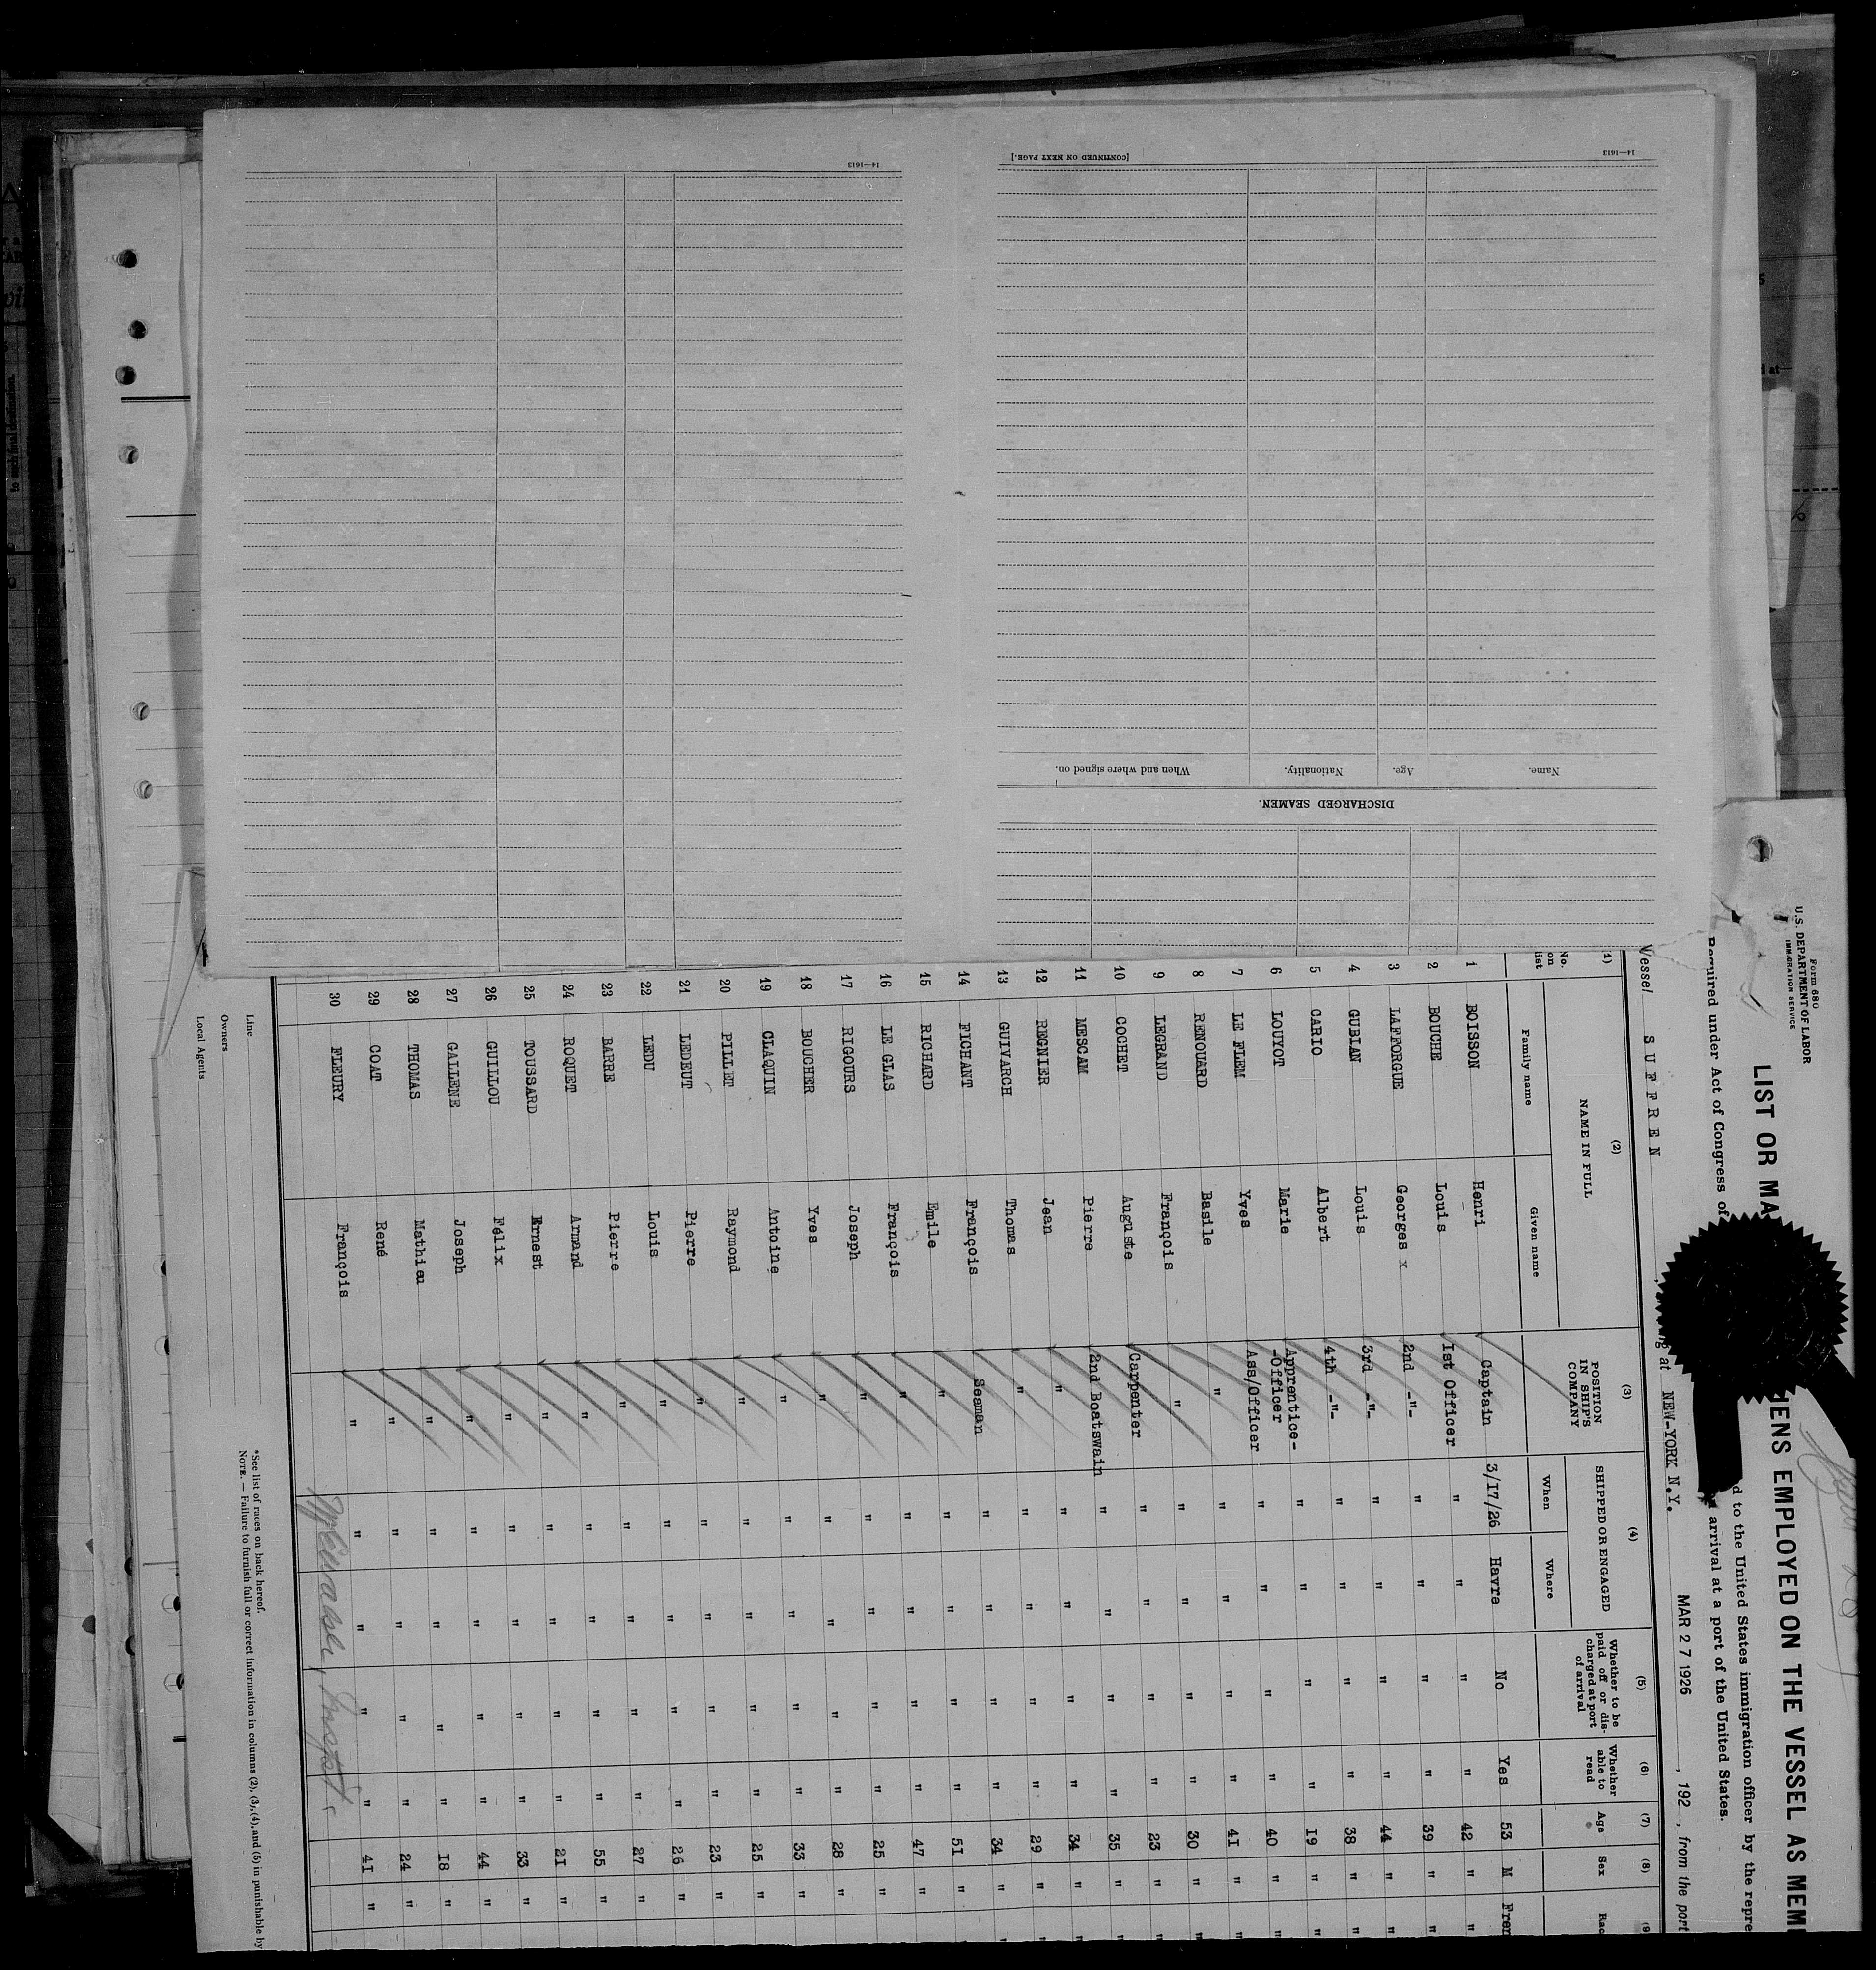 14—1613
[CONTINUED ON NEXT PAGE.]
14—1613
DISCHARGED SEAMEN.
Name. Age. Nationality. When and where signed on.
Form 680
U.S. DEPARTMENT OF LABOR
IMMIGRATION SERVICE
LIST OR MA
IENS EMPLOYED ON THE VESSEL AS MEM
Required under Act of Congress of
d to the United States immigration officer by the repre
arrival at a port of the United States.
Vessel SUFFREN
at NEW-YORK N.Y. MAR 27 1926, 192 , from the port
(1) (2) (3) (4) (5) (6) (7) (8) (9
No. on list
NAME IN FULL
Family name Given name
POSITION IN SHIP'S COMPANY
SHIPPED OR ENGAGED
When Where
Whether to be paid off or discharged at port of arrival
Whether able to read
Age Sex Rac
1 BOISSON Henri Captain 3/17/26 Havre No Yes 53 M Fren
2 BOUCHE Louis 1st Officer " " " " 42 " "
3 LAFFORGUE Georges x 2nd -"- " " " " 39 " "
4 GUBIAN Louis 3rd -"- " " " " 44 " "
5 CARIO Albert 4th -"- " " " " 38 " "
6 LOUYOT Marie Apprentice-
-Officer " " " " 19 " "
7 LE FLEM Yves Ass/Officer " " " " 40 " "
8 RENOUARD Basile " " " " " 41 " "
9 LEGRAND François " " " " " 30 " "
10 COCHET Auguste Carpenter " " " " 23 " "
11 MESCAM Pierre 2nd Boatswain " " " " 35 " "
12 REGNIER Jean " " " " " 34 " "
13 GUIVARCH Thomas " " " " " 29 " "
14 FICHANT François Seaman " " " " 34 " "
15 RICHARD Emile " " " " " 51 " "
16 LE GLAS François " " " " " 47 " "
17 RIGOURS Joseph " " " " " 25 "
18 BOUCHER Yves " " " " " 28 "
19 CLAQUIN Antoine " " " " " 33 "
20 PILLET Raymond " " " " " 25 "
21 LEDEUT Pierre " " " " " 23 "
22 LEDU Louis " " " " " 26 "
23 BARRE Pierre " " " " " 27 "
24 ROQUET Armand " " " " " 55 "
25 TOUSSARD Ernest " " " " " 21 "
26 GUILLOU Félix " " " " " 33 "
27 GALLENE Joseph " " " " " 44 "
28 THOMAS Mathieu " " " " " 18 "
29 COAT René " " " " " 24 "
30 FLEURY François " " " " " 41 "
Line
Owners
Local Agents
*See list of races on back hereof.
NOTE. — Failure to furnish full or correct information in columns (2), (3), (4), and (5) in punishable by